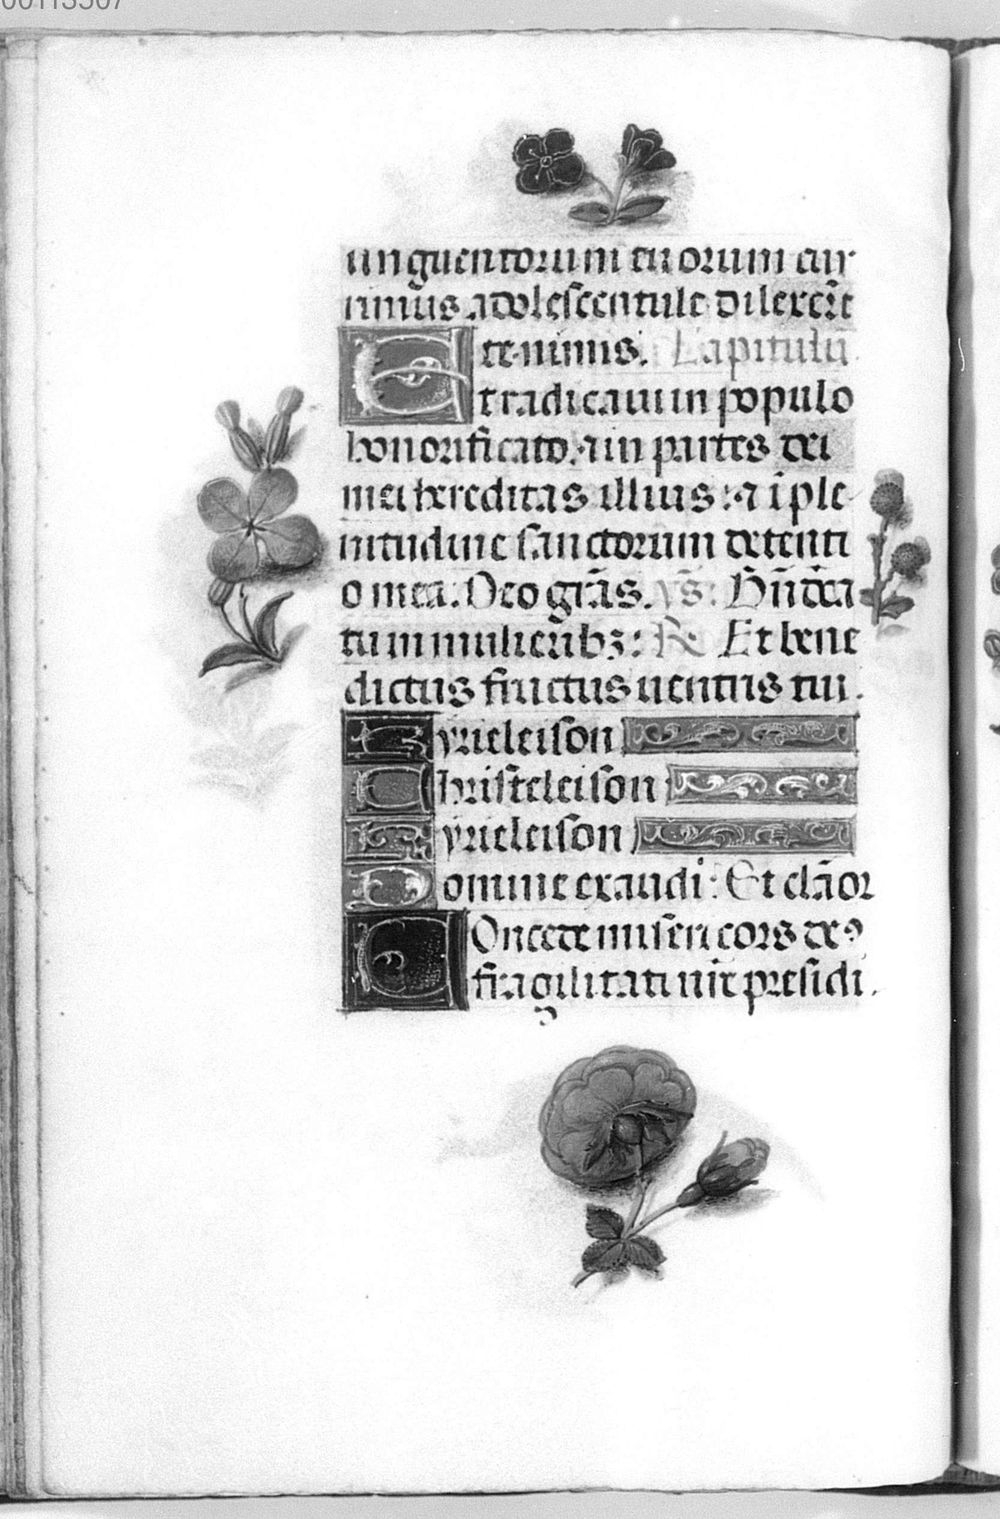 00113507
unguentorum tuorum cur
rimus adolescentule dilexerūt
te nimis. Capitulū
Et radicaui in populo
honorificato. ⁊ in partes dei
mei hereditas illius: ⁊ ī ple
nitudine sanctorum detenti
o mea. Deo grās. v̄s. Bn̄dca
tu in mulierībꝫ: R̄ Et bene
dictus fructus uentris tui.
Kyrieleison
Christeleison
Kyrieleison
Domine exaudi: Et clāor
COncede misericors deꝰ
fragilitati nr̄e presidi.